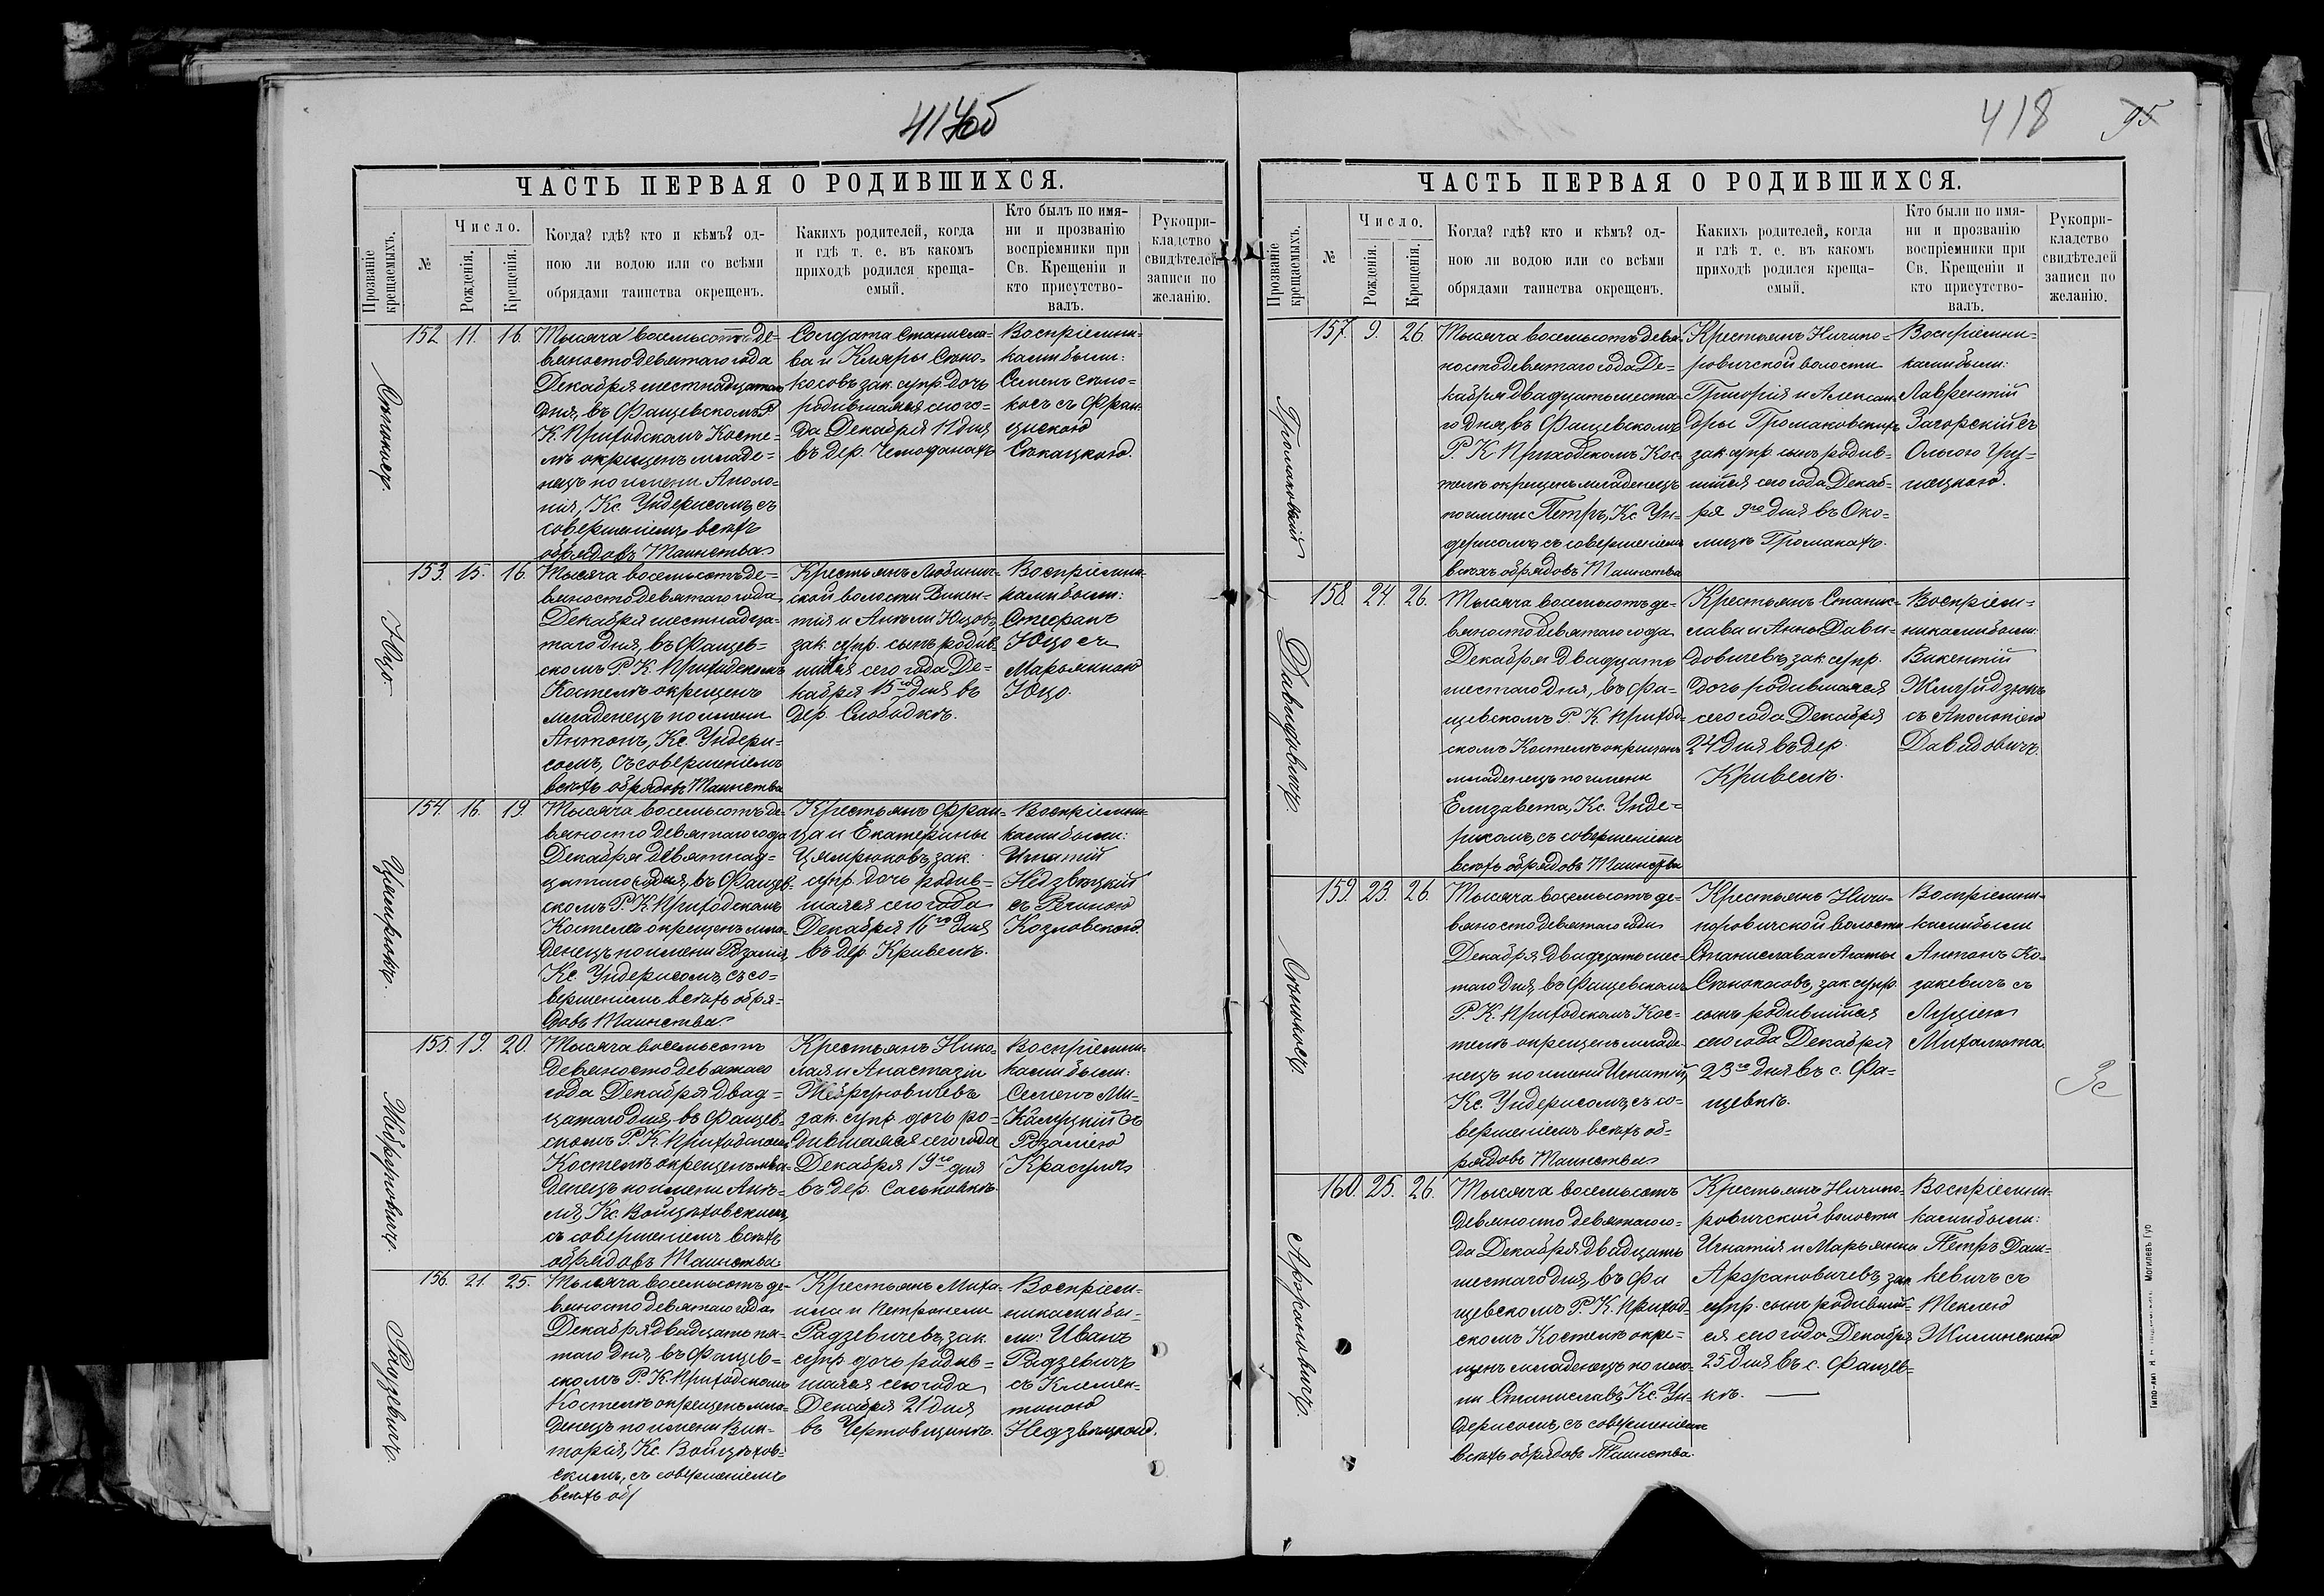 417об
ЧАСТЬ ПЕРВАЯ О РОДИВШИХСЯ.
Прозваніе крещаемыхъ.
№
Число.
Рожденія.
Крещенія.
Когда? гдѣ? кто и кѣмъ? од-
ною ли водою или со всѣми
обрядами таинства окрещенъ.
Какихъ родителей, когда
и гдѣ т. е. въ какомъ
приходѣ родился креща-
емый.
Кто былъ по имя-
ни и прозванію
воспріемники при
Св. Крещеніи и
кто присутство-
валъ.
Рукопри-
кладство
свидѣтелей
записи по
желанію.
Сѣнокосъ.
152. 11. 16.
Тысяча восемьсотъ де-
вяносто девятаго года
Декабря шестнадцатаго
дня, въ Фащевскомъ Р.
К. Приходскомъ Косте-
лѣ окрещенъ младе-
нецъ по имени Аполо-
нія, Кс. Ундерисомъ, съ
совершеніемъ всѣхъ
обрядовъ Таинства
Солдата Станисла-
ва и Кляры Сѣно-
косовъ зак. супр. дочь
родившаяся сего го-
да Декабря 11 дня
въ дер. Чемоданахъ
Воспріемни-
ками были:
Семенъ Сѣно-
косъ съ Фран-
цискою
Сѣкацкою.
Юцо.
153. 15. 16.
Тысяча восемьсотъ де-
вяносто девятаго года
Декабря шестнадца-
таго дня, въ Фащев-
скомъ Р. К. Приходскомъ
Костелѣ окрещенъ
младенецъ по имени
Антонъ, Кс. Ундери-
сомъ, съ совершеніемъ
всѣхъ обрядовъ Таинства
Крестьянъ Любинич-
ской волости Викен-
тія и Анѣли Юцовъ,
зак. супр. сынъ родив-
шійся сего года Де-
кабря 15го дня въ
дер. Слободкѣ.
Воспріемни-
ками были:
Стефанъ
Юцо съ
Марьянною
Юцо.
154. 16. 19.
Тысяча восемьсотъ де-
вяносто девятаго года
Декабря девятнад-
цатаго дня, въ Фащев-
скомъ Р. К. Приходскомъ
Костелѣ окрещенъ мла-
денецъ по имени Розалія,
Кс. Ундерисомъ, съ со-
вершеніемъ всѣхъ обря-
довъ Таинства
Крестьянъ Фран-
ца и Екатерины
зак.
супр. дочь родив-
шаяся сего года
Декабря 16го дня
въ дер. Кривелѣ.
Воспріемни-
ками были:
Игнатій
Недзвѣцкій
съ Региною
Козловскою.
155. 19. 20.
Тысяча восемьсотъ
девяносто девятаго
года Декабря двад-
цатаго дня, въ Фащев-
скомъ Р. К. Приходскомъ
Костелѣ окрещенъ мла-
денецъ по имени Анѣ-
ля, Кс. Войцѣховскимъ,
съ совершеніемъ всѣхъ
обрядовъ Таинства
Крестьянъ Нико-
лая и Анастазіи
зак. супр. дочь ро-
дившаяся сего года
Декабря 19го дня
въ дер. Саськовкѣ.
Воспріемни-
ками были:
Семенъ Ми-
съ
Розаліею
Красуля
Радзевичъ.
156. 21. 25.
Тысяча восемьсотъ де-
вяносто девятаго года
Декабря двадцать пя-
таго дня, въ Фащев-
скомъ Р. К. Приходскомъ
Костелѣ окрещенъ мла-
денецъ по имени Вик-
торія, Кс. Войцѣхов-
скимъ, съ совершеніемъ
всѣхъ об
Крестьянъ Миха-
ила и Петронели
Радзевичевъ, зак.
супр. дочь родив-
шаяся сего года
Декабря 21 дня
въ Чертовщинѣ.
Воспріем-
никами бы-
ли: Иванъ
Радзевичъ
съ Клемен-
тиною
Недзвѣцкою.
418
95
ЧАСТЬ ПЕРВАЯ О РОДИВШИХСЯ.
Прозваніе крещаемыхъ.
№
Число.
Рожденія.
Крещенія.
Когда? гдѣ? кто и кѣмъ? од-
ною ли водою или со всѣми
обрядами таинства окрещенъ.
Какихъ родителей, когда
и гдѣ т. е. въ какомъ
приходѣ родился креща-
емый.
Кто были по имя-
ни и прозванію
воспріемники при
Св. Крещеніи и
кто присутство-
валъ.
Рукопри-
кладство
свидѣтелей
записи по
желанію.
Громаковскій
157. 9. 26.
Тысяча восемьсотъ девя-
носто девятаго года Де-
кабря двадцать шеста-
го дня, въ Фащевскомъ
Р. К. Приходскомъ Кос-
телѣ окрещенъ младенецъ
по имени Петръ, Кс. Ун-
дерисомъ, съ совершеніемъ
всѣхъ обрядовъ Таинства
Крестьянъ Ничипо-
ровичской волости
Григорія и Алексан-
дры Громаковскихъ
зак. супр. сынъ родив-
шійся сего года Декаб-
ря 9го дня въ Око-
лицѣ Громакахъ.
Воспріемни-
ками были:
Лаврентій
Загорскій съ
Ольгою Гру-
Давидовичъ.
158. 24. 26.
Тысяча восемьсотъ де-
вяносто девятаго года
Декабря двадцать
шестаго дня, въ Фа-
щевскомъ Р. К. Приход-
скомъ Костелѣ окрещенъ
младенецъ по имени
Елизавета, Кс. Унде-
рисомъ, съ совершеніемъ
всѣхъ обрядовъ Таинства
Крестьянъ Станис-
лава и Анны Дави-
довичевъ, зак. супр.
дочь родившаяся
сего года Декабря
24 дня въ дер.
Кривелѣ.
Воспріем-
никами были:
Викентій
съ Аполоніею
Давидовичъ.
Сѣнокосъ.
159. 23. 26.
Тысяча восемьсотъ де-
вяносто девятаго года
Декабря двадцать шес-
таго дня, въ Фащевскомъ
Р. К. Приходскомъ Кос-
телѣ окрещенъ младе-
нецъ по имени Игнатій,
Кс. Ундерисомъ, съ со-
вершеніемъ всѣхъ об-
рядовъ Таинства
Крестьянъ Ничи-
поровичской волости
Станислава и Агаты
Сѣнокосовъ, зак. супр.
сынъ родившійся
сего года Декабря
23го дня въ с. Фа-
щевкѣ.
Воспріемни-
ками были
Антонъ Ко-
закевичъ съ
Луціею
Михалюта
Зс
Аржановичъ.
160. 25. 26.
Тысяча восемьсотъ
девяносто девятаго го-
да Декабря двадцать
шестаго дня, въ Фа
щевскомъ Р. К. Приход-
скомъ Костелѣ окре-
щенъ младенецъ по име-
ни Станиславъ, Кс. Ун-
дерисомъ, съ совершеніемъ
всѣхъ обрядовъ Таинства.
Крестьянъ Ничипо-
ровичской волости
Игнатія и Марьянны
Аржановичевъ, зак.
супр. сынъ родившій-
ся сего года Декабря
25 дня въ с. Фащев-
кѣ.
Воспріемни-
ками были:
Петръ Даш-
кевичъ съ
Теклею
Жилинскою
Могилевъ Губ